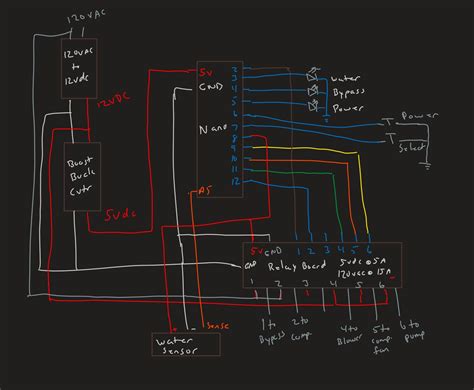 120VAC
120VAC
to
12VDC
12VDC
Boost
Buck
Cvtr
5VDC
5V
GND
Nano
A5
2
3
4
5
6
7
8
9
10
11
12
water
Bypass
Power
Power
Select
5V GND 1 2 3 4 5 6
Relay Board
5VDC @ 5A
120VAC @ 15A
GND
1 2 3 4 5 6
sense
+ -
water
sensor
1 to
Bypass
2 to
comp.
4 to
Blower
5 to
comp.
fan
6 to
pump